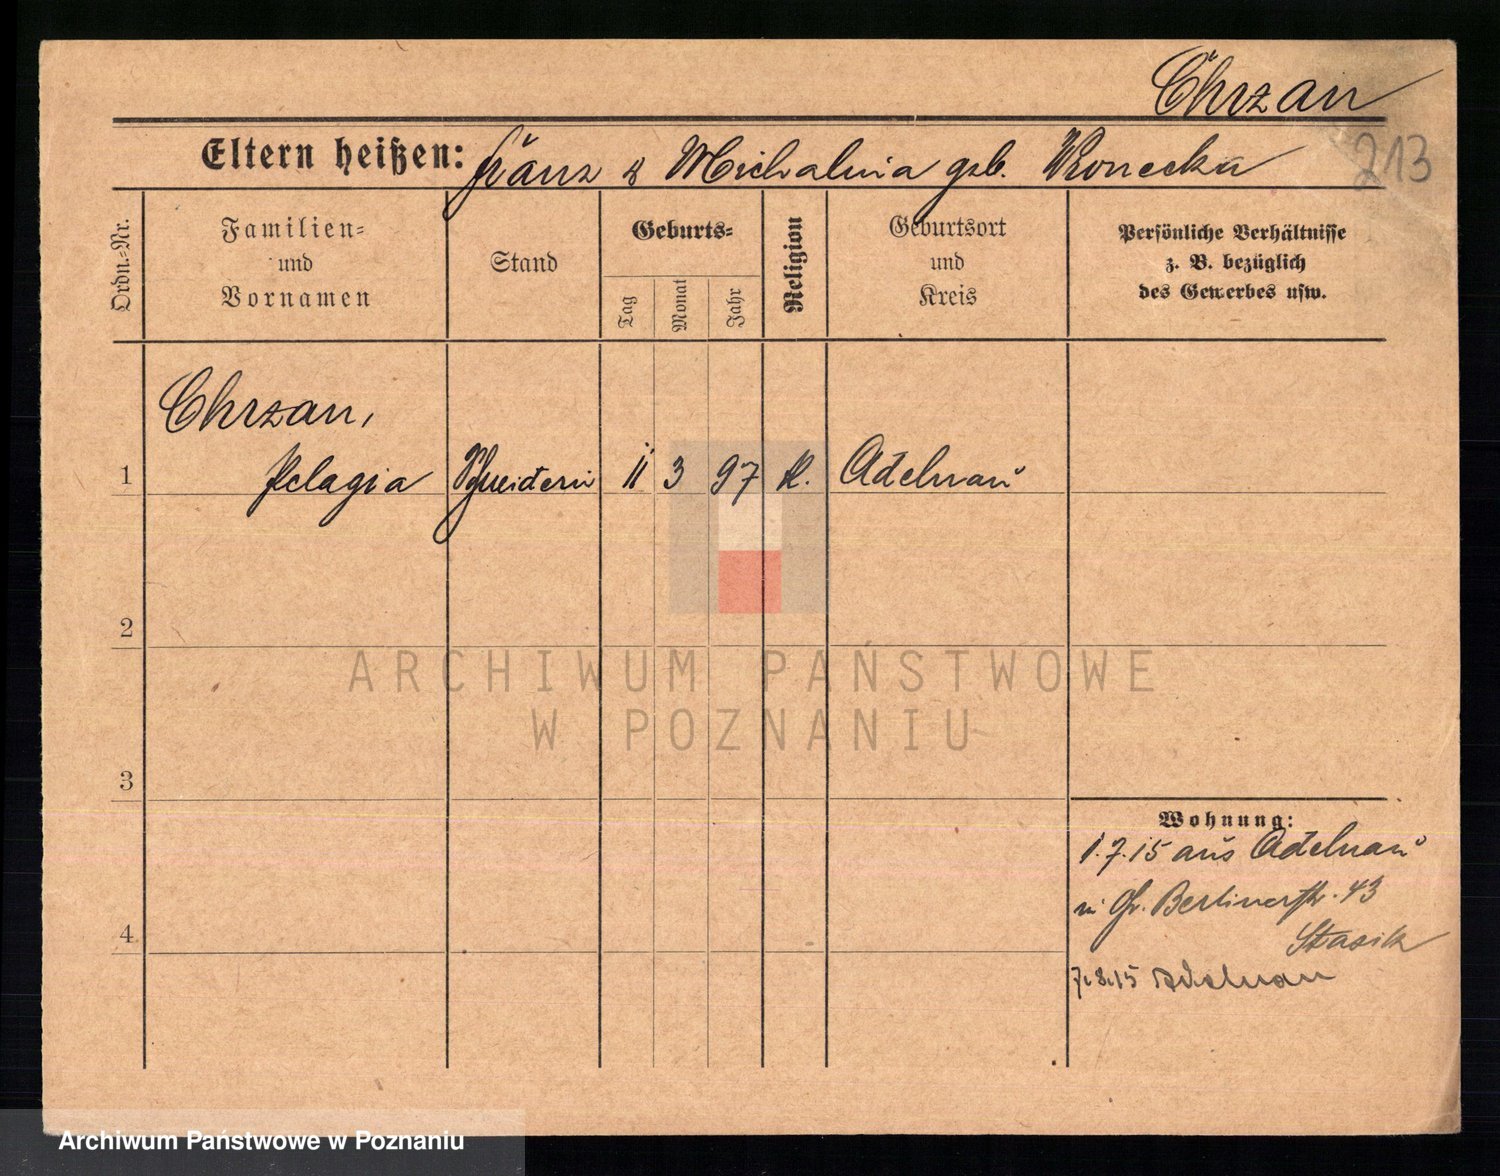 Chrzan
213
Eltern heißen: Franz & Michalina geb. Wronecka
Ordn.-Nr.
Familien-
und
Vornamen
Stand
Geburts-
Tag
Monat
Jahr
Religion
Geburtsort
und
Kreis
Persönliche Verhältnisse
z. B. bezüglich
des Gewerbes usw.
Chrzan,
1 Pelagia Schneiderin 11 3 97 K. Adelnau
2
3
4
Wohnung:
1.7.15 aus Adelnau
in Gr. Berlinerstr. 43
Stasik
7.8.15 Adelnau
ARCHIWUM PAŃSTWOWE
W POZNANIU
Archiwum Państwowe w Poznaniu